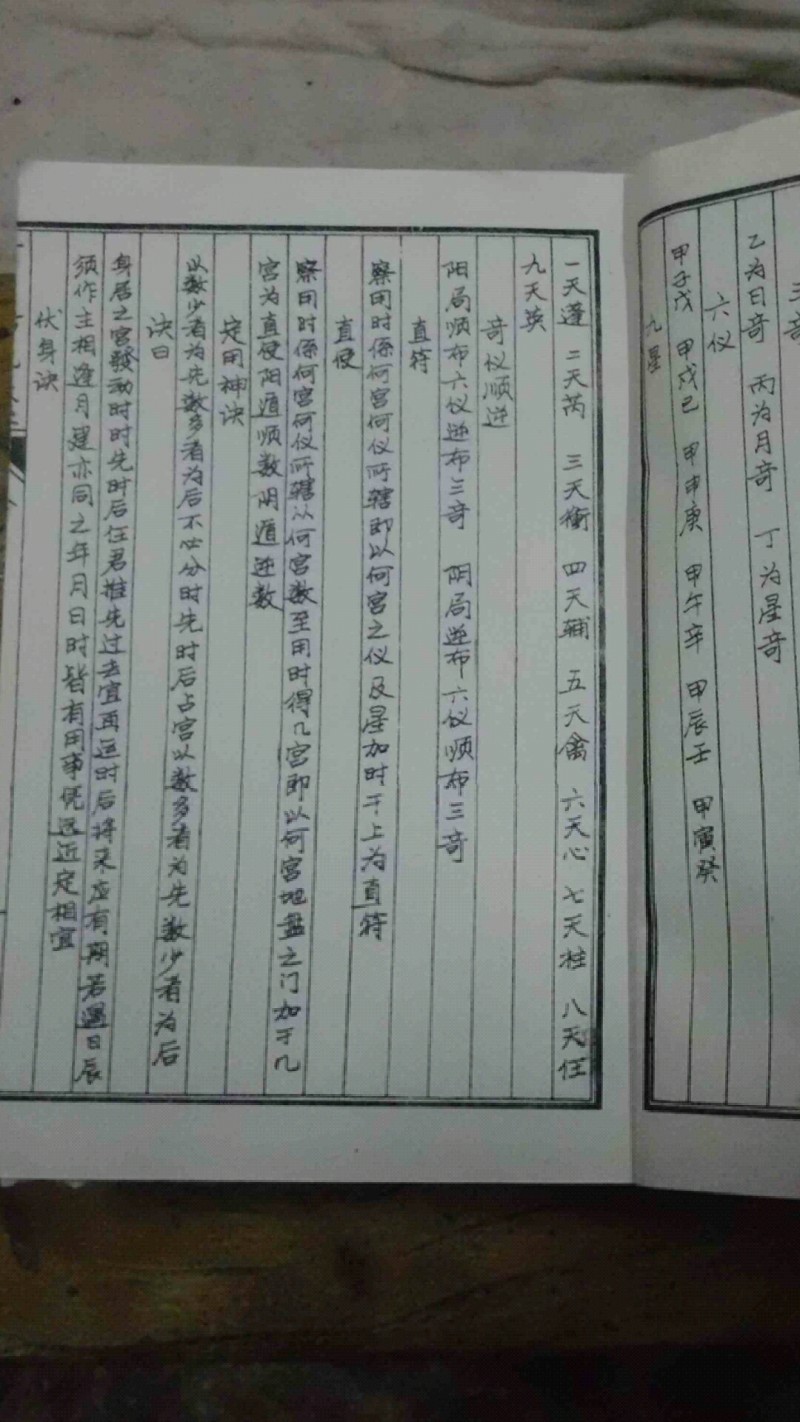 乙为日奇 丙为月奇 丁为星奇
六仪
甲子戊 甲戌己 甲申庚 甲午辛 甲辰壬 甲寅癸
九星
一天蓬 二天芮 三天衝 四天辅 五天禽 六天心 七天柱 八天任
九天英
奇仪顺逆
阳局顺布六仪逆布三奇 阴局逆布六仪顺布三奇
直符
察用时係何宫何仪所辖即以何宫之仪及星加时干上为直符
直使
察用时係何宫何仪所辖从何宫数至用时得几宫即以何宫地盘之门加于几
宫为直使阳遁顺数阴遁逆数
定用神诀
以数少者为先数多者为后不必分时先时后占宫以数多者为先数少者为后
诀曰
身居之宫發动时时先时后任君推先过去宜再运时后将来应有期若遇日辰
须作主相逢月建亦同之年月日时皆有用事凭远近定相宜
伏身诀